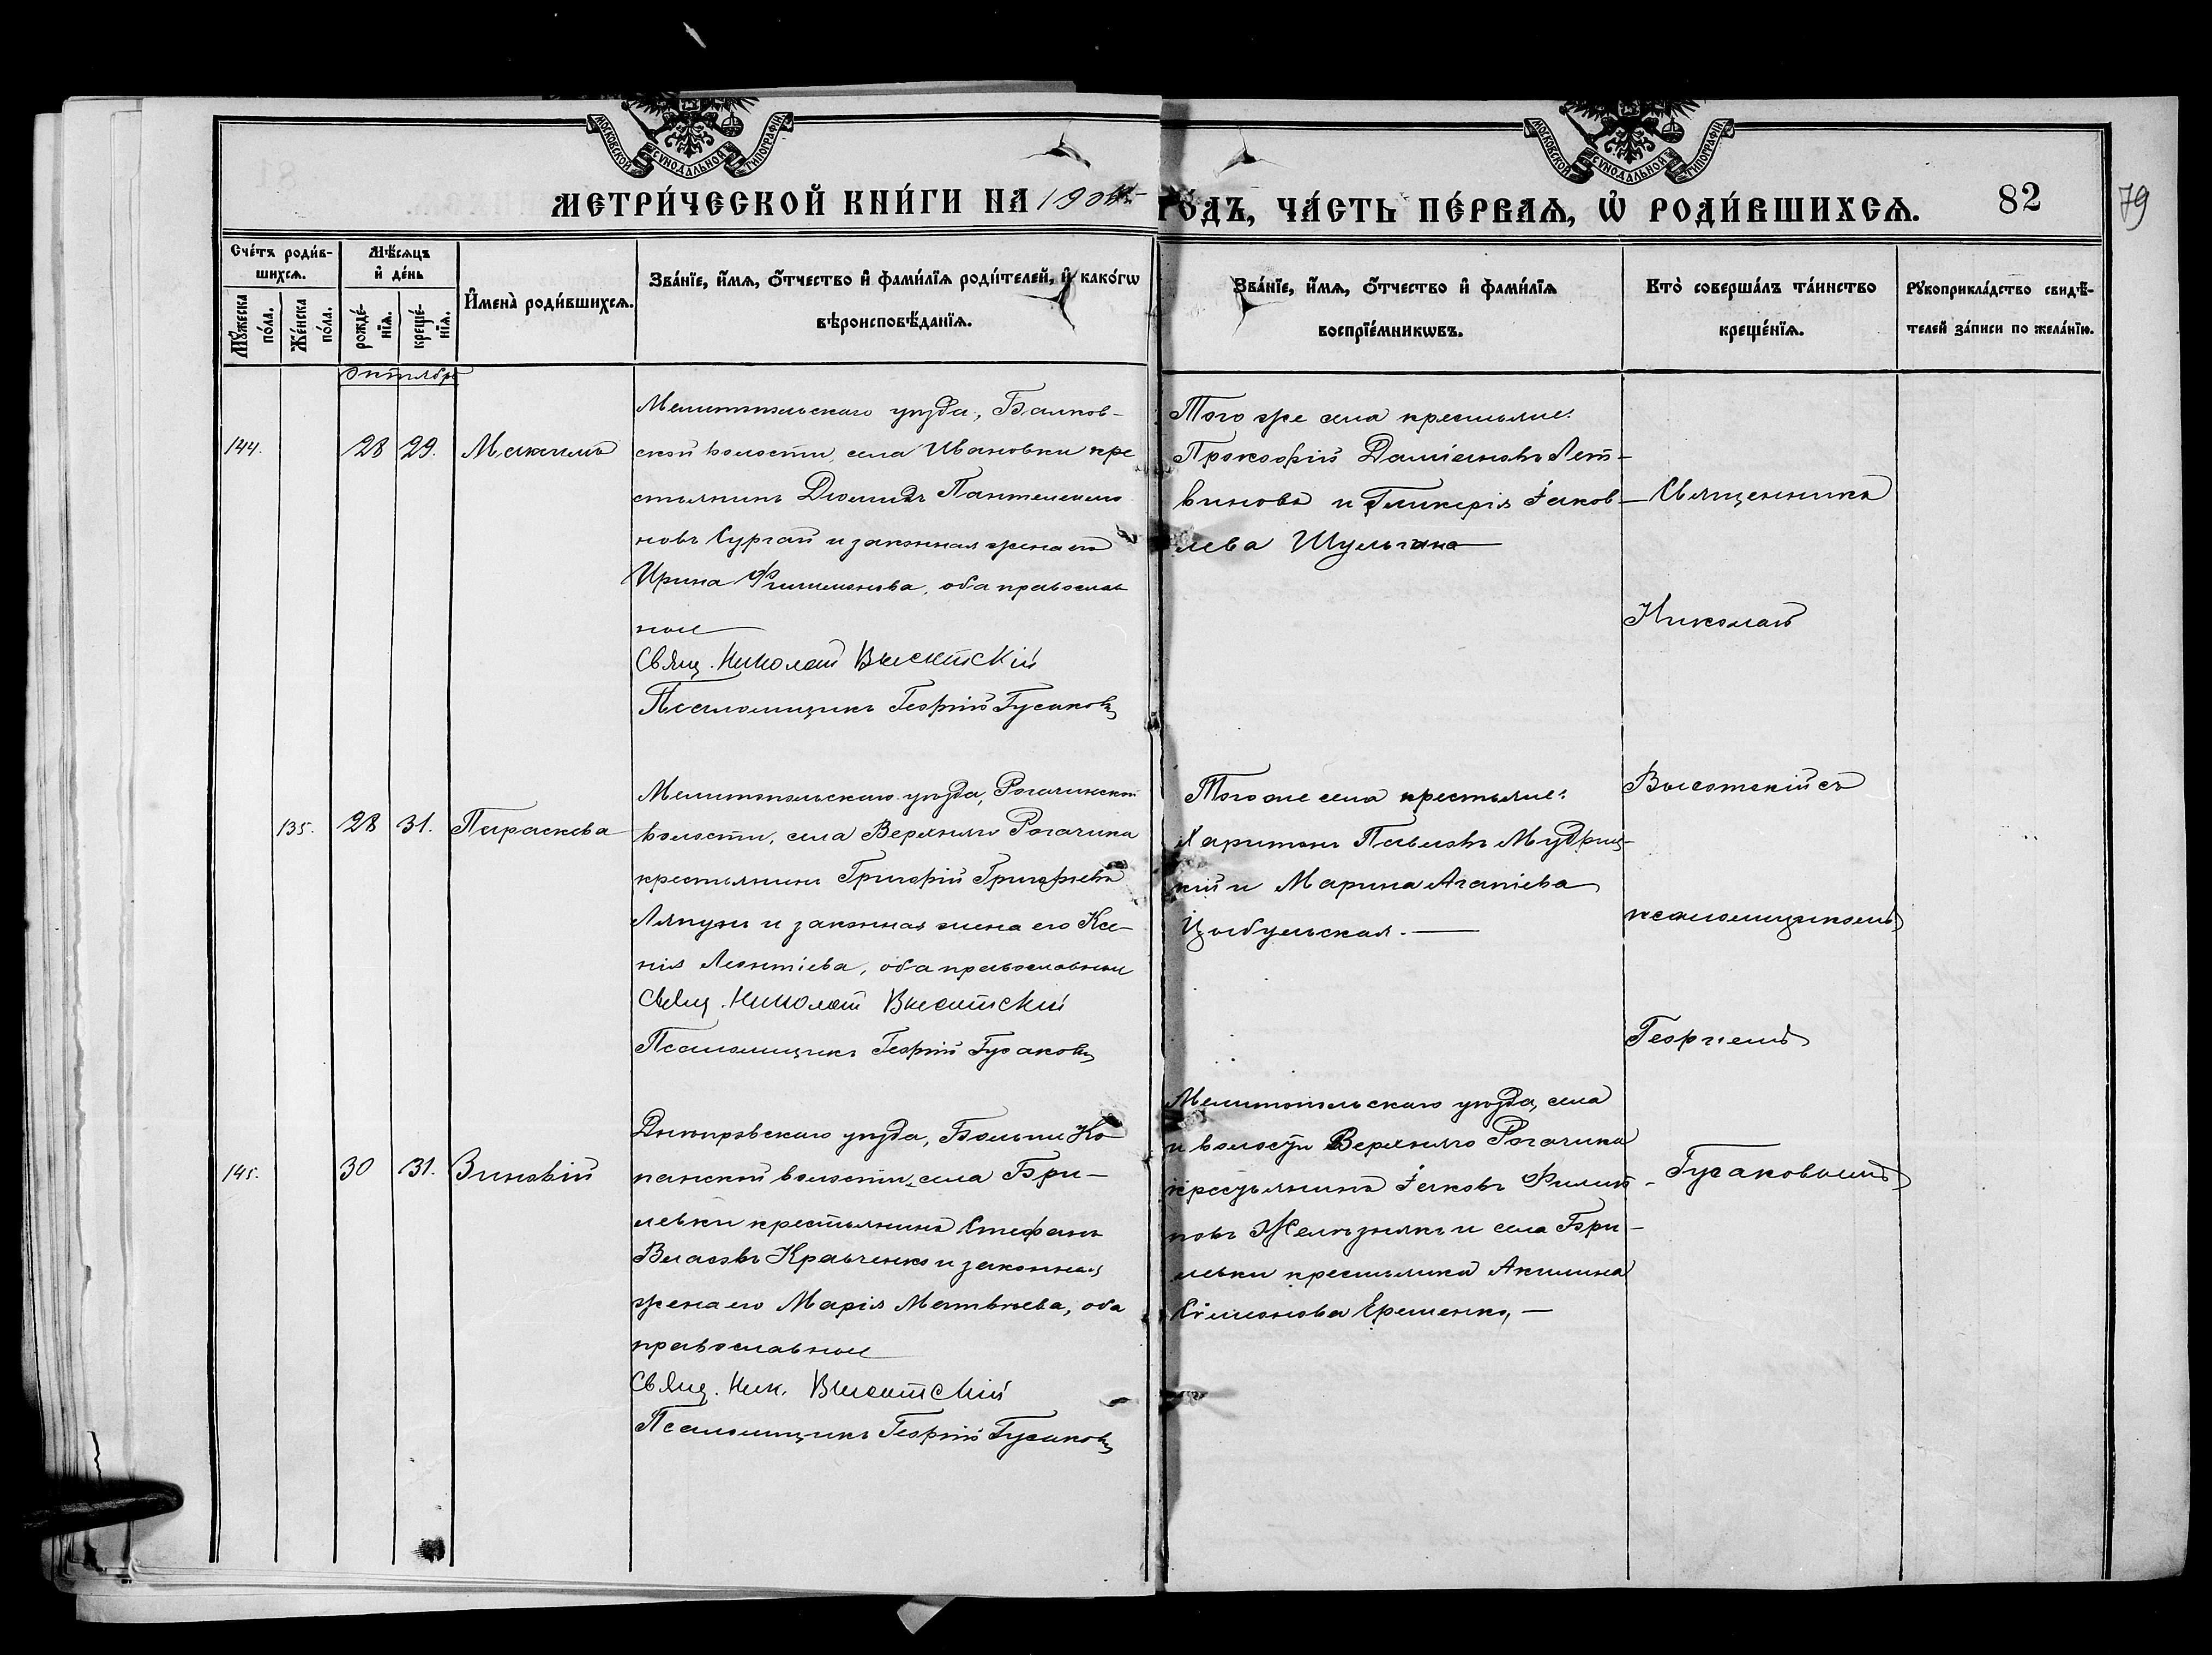 МОСКОВСКОЙ СѴНОДАЛЬНОЙ ТИПОГРАФІИ
МОСКОВСКОЙ СѴНОДАЛЬНОЙ ТИПОГРАФІИ
МЕТРИ́ЧЕСКОЙ КНИ́ГИ НА 190
ГО́ДЪ, ЧА́СТЬ ПЕ́РВАѦ, Ѡ҆ РОДИ́ВШИХСѦ.
82
79
Сче́тъ роди́в-
шихсѧ.
Мꙋ́жеска по́ла.
Же́нска по́ла.
Мѣ́сѧцъ
и҆ де́нь
рожде́-
нїѧ.
креще́-
нїѧ.
И҆мена̀ роди́вшихсѧ.
Зва́нїе, и҆́мѧ, ѻ҆́тчество и҆ фами́лїѧ роди́телей, и҆ како́гѡ
вѣроисповѣ́данїѧ.
Зва́нїе, и҆́мѧ, ѻ҆́тчество и҆ фами́лїѧ
воспрїе́мникѡвъ.
Кто̀ соверша́лъ та́инство
креще́нїѧ.
Рꙋкоприкла́дство свидѣ́-
телей за́писи по жела́нїю.
Октябрь
144.
28
29.
Максимъ
Мелитопольскаго уѣзда, Балков-
ской волости, села Ивановки кре
стьянинъ Діомидъ Пантелеимо
новъ Сургай и законная жена его
Ирина Филимонова, оба православ
ные
Свящ. Николай Высотскій
Псаломщикъ Георгій Гусаковъ
Того же села крестьяне:
Прокофій Даміановъ Лет-
виновъ и Гликерія Іаков-
лева Шульгина
Священникъ
Николай
Высотскій съ
псаломщикомъ
Георгіемъ
Гусаковымъ
135.
28
31.
Параскева
Мелитопольскаго уѣзда, Рогачинской
волости, села Верхняго Рогачика
крестьянинъ Григорій Григорьевъ
Ляпунъ и законная жена его Ксе-
нія Леонтіева, оба православные
Свящ. Николай Высотскій
Псаломщикъ Георгій Гусаковъ
Того же села крестьяне:
Харитонъ Павловъ Мудриц-
кій и Марина Агапіева
Цыбульская.
145.
30
31.
Зиновій
Днѣпровскаго уѣзда, Больше Ко
панской волости, села Бри-
левки крестьянинъ Стефанъ
Власовъ Кравченко и законная
жена его Марія Матвѣева, оба
православные
Свящ. Ник. Высотскій
Псаломщикъ Георгій Гусаковъ
Мелитопольскаго уѣзда, села
и волости Верхняго Рогачика
крестьянинъ Іаковъ Филип-
повъ Желѣзнякъ и села Бри-
левки крестьянка Акилина
Сімонова Еременко,